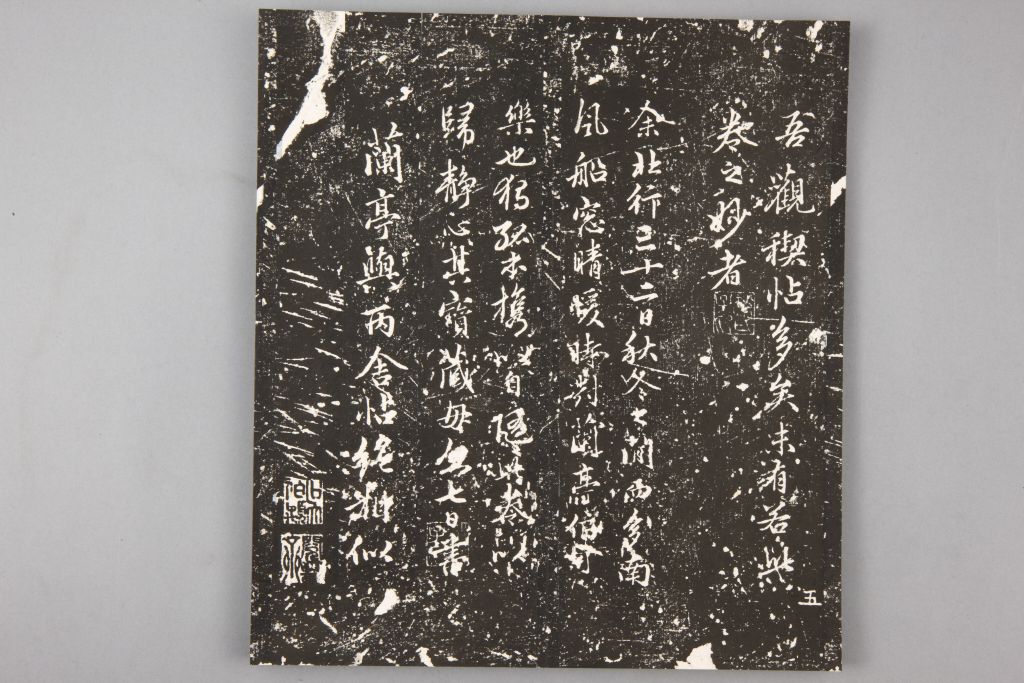 吾觀稧帖多矣未有若此
卷之妙者
余北行三十二日秋冬之間而多南
風船窓晴暖時對蘭亭信可
樂也獨孤本携以自隨此卷以
歸静心其寳藏毋忽七日書
蘭亭與丙舍帖絶相似
五